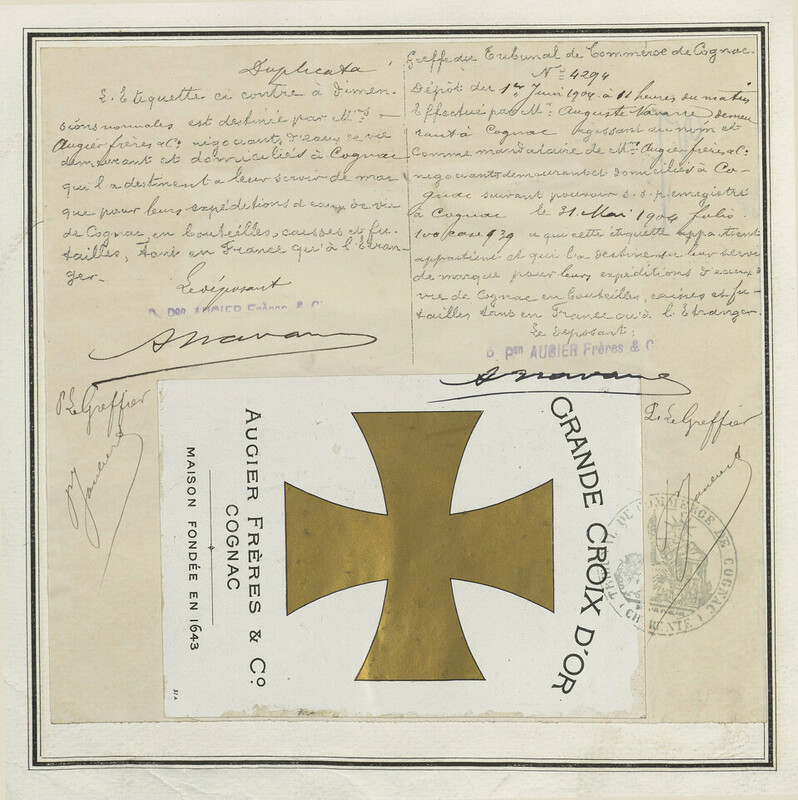 Duplicata
L'Etiquette ci contre à dimen-
sions normales est destinée par M.rs
Augier frères & Co. négociants d'eaux de vie
demeurant et domiciliés à Cognac
qui la destinent a leur servir de mar
que pour leurs expéditions d'eaux de vie
de Cognac, en bouteilles, caisses et fu-
tailles, tant en France qu'à l'Etran-
ger.
Le déposant
P. Pon AUGIER Frères & Co
P. Le Greffier
Greffe du Tribunal de Commerce de Cognac.
No. 4294
Dépôt du 1er Juin 1904 à 11 heures du matin
Effectué par Mr. Auguste demeu
rant à Cognac agissant au nom et
comme mandataire de M.rs Augier frères & Co.
négociants demeurant et domiciliés à Co-
gnac suivant pouvoir s.s.p. enregistré
à Cognac le 31 Mai 1904 folio
100 case 939 a qui cette étiquette appartient
appartient et qui la destinent leur servir
de marque pour leurs expéditions d'eaux de
vie de Cognac en bouteilles, caisses et fu-
tailles tant en France qu'à l'Etranger.
Le déposant:
P. Pon AUGIER Frères & Co
P. Le Greffier
GRANDE CROIX D'OR
AUGIER FRÈRES & Co.
COGNAC
MAISON FONDÉE EN 1643
TRIBUNAL DE COMMERCE DE COGNAC
(CHARENTE)